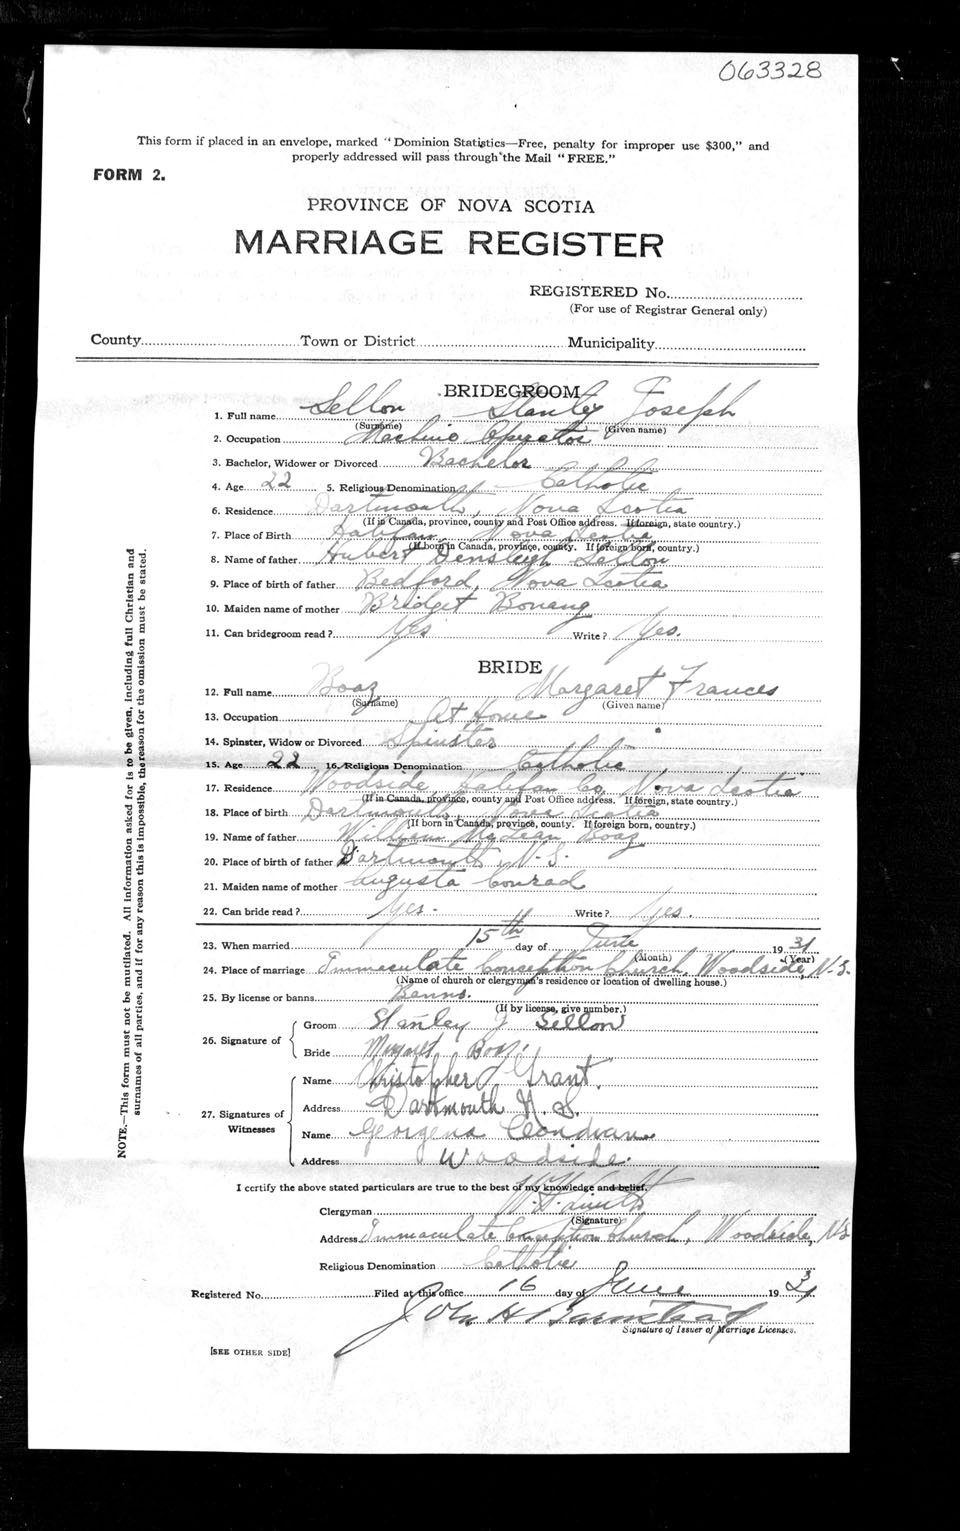 063328
This form if placed in an envelope, marked "Dominion Statistics—Free, penalty for improper use $300," and
properly addressed will pass through the Mail "FREE."
FORM 2.
PROVINCE OF NOVA SCOTIA
MARRIAGE REGISTER
REGISTERED No.
(For use of Registrar General only)
County Town or District Municipality
BRIDEGROOM
1. Full name Sellon Stanley Joseph
(Surname) (Given name)
2. Occupation Machine Operator
3. Bachelor, Widower or Divorced Bachelor
4. Age 22 5. Religious Denomination Catholic
6. Residence Dartmouth, Nova Scotia
(If in Canada, province, county and Post Office address. If foreign, state country.)
7. Place of Birth Halifax, Nova Scotia
(If born in Canada, province, county. If foreign born, country.)
8. Name of father Hubert Densleigh Sellon
9. Place of birth of father Bedford, Nova Scotia
10. Maiden name of mother Bridget Bonang
11. Can bridegroom read? Yes Write? Yes.
BRIDE
12. Full name Boaz Margaret Frances
(Surname) (Given name)
13. Occupation At Home
14. Spinster, Widow or Divorced Spinster
15. Age 22 16. Religious Denomination Catholic
17. Residence Woodside Halifax Co, Nova Scotia
(If in Canada, province, county and Post Office address. If foreign, state country.)
18. Place of birth Dartmouth, Nova Scotia
(If born in Canada, province, county. If foreign born, country.)
19. Name of father William McLean Boaz
20. Place of birth of father Dartmouth, N.S.
21. Maiden name of mother Augusta Conrad
22. Can bride read? Yes. Write? Yes.
23. When married 15th day of June 1931
(Month) (Year)
24. Place of marriage Immaculate Conception Church, Woodside, N.S.
(Name of church or clergyman's residence or location of dwelling house.)
25. By license or banns Banns.
(If by license, give number.)
26. Signature of Groom Stanley J Sellon
Bride Margaret Boaz
27. Signatures of Witnesses Name Christopher J Grant.
Address Dartmouth N.S.
Name Georgena
Address Woodside.
I certify the above stated particulars are true to the best of my knowledge and belief.
Clergyman
(Signature)
Address Immaculate Conception Church, Woodside, N.S.
Religious Denomination Catholic
Registered No. Filed at this office 16 day of June 1931
John H Barnstead
Signature of Issuer of Marriage Licenses.
[SEE OTHER SIDE]
NOTE.—This form must not be mutilated. All information asked for is to be given, including full Christian and
surnames of all parties, and if for any reason this is impossible, the reason for the omission must be stated.